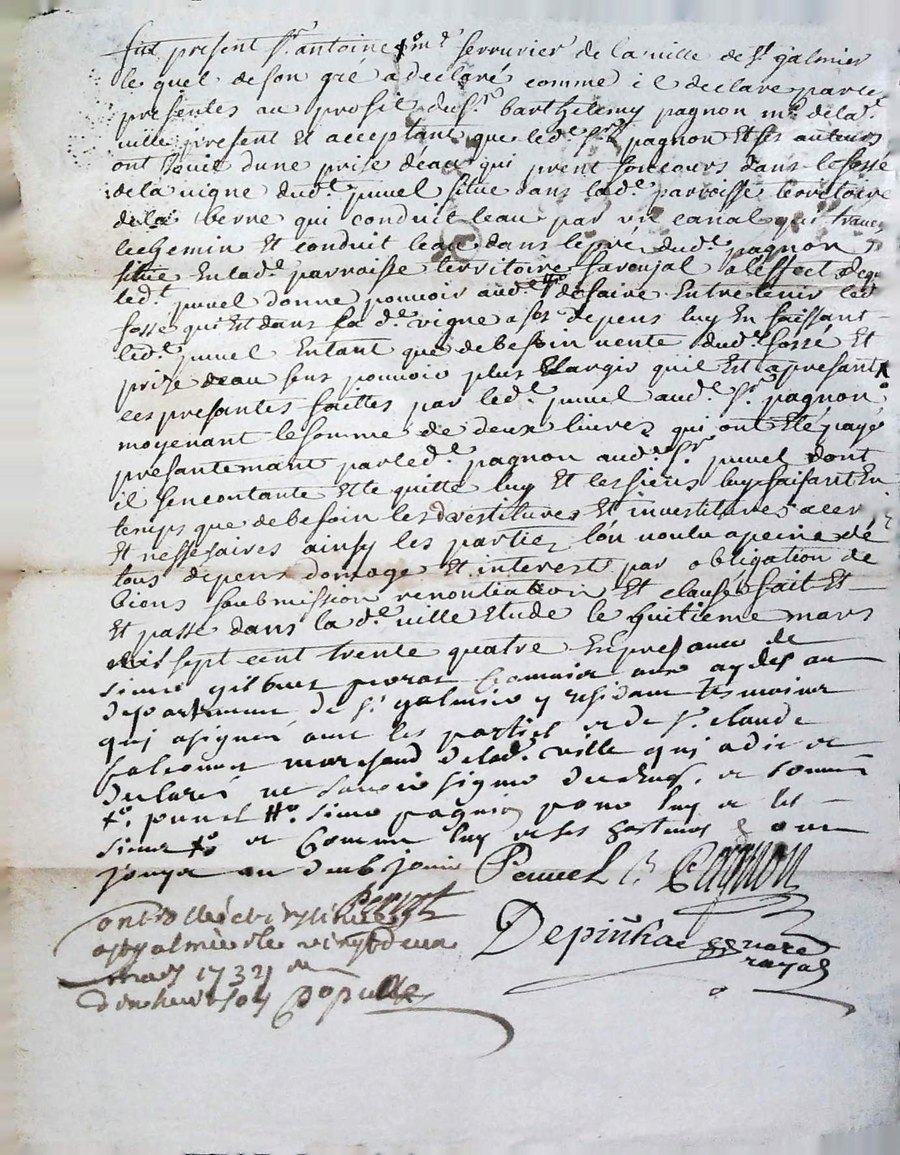 fut present Sr. antoine xo md. serrurier de la ville de St galmier
le quel de son gré a declaré comme il declare par ce
presentes au profit du Sr. barthelemy pagnon md. de lad.
ville present Et acceptant que led. Sr. pagnon Et ses auteurs
ont Jouit dune prise deau qui prent son cours dans le fossé
de la vigne dud. punel situé dans lad. parroisse territoire
de la berne qui conduit leau par un canal qui traver
le chemin Et conduit leau dans le pré dud. pagnon
situé En lad. parroisse territoire a leffect de
led. punel donne pouvoir aud. de faire Entretenir led
fossé qui Est dans la d. vigne a ses depens luy En faissant
led. punel Entant que de besoin vente dud. fossé Et
prise deau sens pouvoir plus Elargir quil Est apresant
ces presantes faittes par led. punel aud. Sr. pagnon
moyenant le somme de deux livres qui ont Eté payé
presantemant par led. pagnon aud. Sr. punel dont
il sen contante Et le quitte luy Et les siens luy faisant En
temps que de besoin les devestitures Et investitures a ce
Et nessesaires ainsy les parties lon voulu a peine de
tous depens domage Et interest par obligation de
biens soubmission renontiation Et clause fait Et
Et passé dans la d. ville Etude le huitieme mars
mil sept cent trente quatre En presance de
sieur gilbert commis aux aydes au
departement de St galmier y residant tesmoins
qui a signé avec les parties et de Sr. claude
marchand de lad. ville qui a dit et
declaré ne savoir signer de et sommé
xo. punel #o. sieur pagnon pour luy et les
siens xo et comme luy et ses ont
jouy au Punel B Pagnon
controllé
a St galmier le vingt deux Depinhac notaire
mars 1734 royal
douze sols Populle